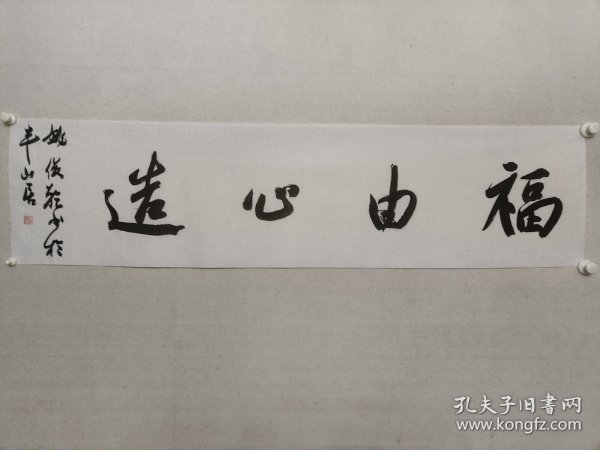 福由心造
姚俊於书於
半山居
孔夫子旧書网
www.kongfz.com